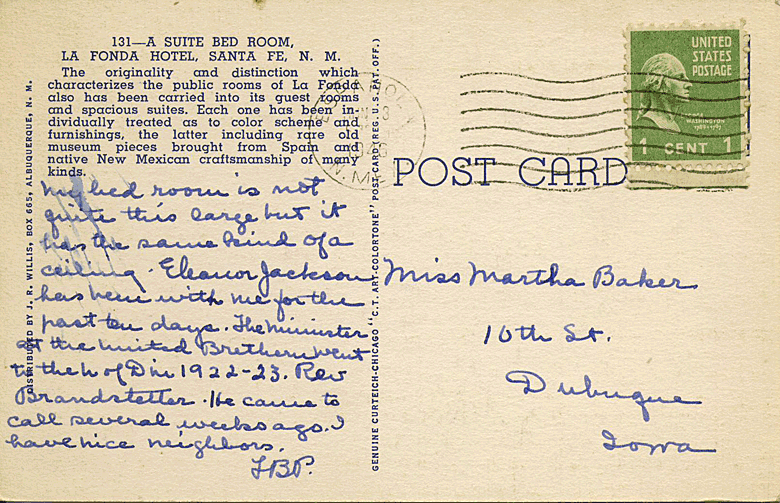 131—A SUITE BED ROOM,
LA FONDA HOTEL, SANTA FE, N. M.
The originality and distinction which
characterizes the public rooms of La Fonda
also has been carried into its guest rooms
and spacious suites. Each one has been in-
dividually treated as to color scheme and
furnishings, the latter including rare old
museum pieces brought from Spain and
native New Mexican craftsmanship of many
kinds.
My bed room is not
quite this large but it
has the same kind of a
ceiling. Eleanor Jackson
has been with me for the
past ten days. The minister
at the United Brethern went
to the U of D in 1922-23. Rev
Brandstetter. He came to
call several weeks ago. I
have nice neighbors.
FBP.
DISTRIBUTED BY J. R. WILLIS, BOX 665, ALBUQUERQUE, N. M.
GENUINE CURTEICH-CHICAGO "C.T. ART-COLORTONE" POST CARD (REG. U.S. PAT. OFF.)
POST CARD
UNITED
STATES
POSTAGE
WASHINGTON
1789-1797
1 CENT 1
Miss Martha Baker
10th St.
Dubuque
Iowa